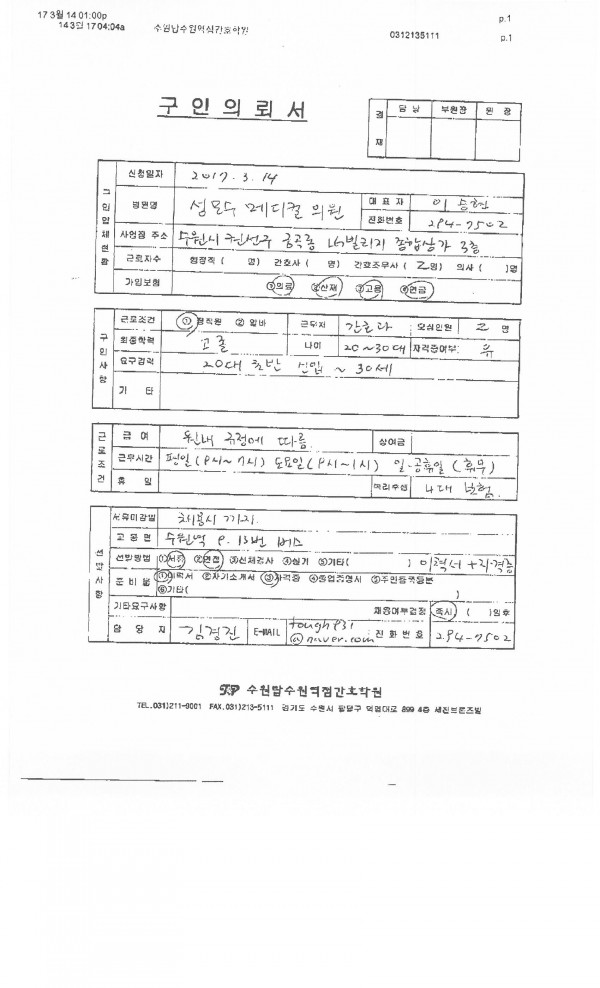 17 3월 14 01:00p
14 3월 17 04:04a 수원탑수원역점간호학원 0312135111 p.1
p.1
구 인 의 뢰 서
결 재 담 당 부원장 원 장
구 인 업 체 현 황
신청일자 2017. 3. 14
병원명 성모수 메디컬 의원 대 표 자 이 승현
전화번호 294-7502
사업장 주소 수원시 권선구 금곡동 LG빌리지 종합상가 3층
근로자수 행정직 ( 명) 간호사 ( 명) 간호조무사 ( 2명) 의사 ( )명
가입보험 ①의료 ②산재 ③고용 ④연금
구 인 사 항
근로조건 ① 정직원 ② 알바 근무처 모집인원 2 명
최종학력 고졸 나이 20~30대 자격증여부 유
요구경력 20대 초반 신입 ~ 30세
기 타
근 로 조 건
급 여 원내 규정에 따름. 상여금
근무시간 평일 (9시~7시) 토요일 (9시~1시) 일-공휴일 (휴무)
휴 일 복리후생 4대 보험.
선 발 사 항
서류마감일 채용시 까지.
교 통 편 수원역 9. 13번 버스
선발방법 ①서류 ②면접 ③신체검사 ④실기 ⑤기타( ) 이력서 + 자격증
준 비 물 ①이력서 ②자기소개서 ③자격증 ④졸업증명서 ⑤주민등록등본
⑥기타( )
기타요구사항 채용여부결정 즉시 ( )일후
담 당 자 김경진 E-MAIL tough831 @naver.com 전 화 번 호 294-7502
수원탑수원역점간호학원
TEL.031)211-9001 FAX.031)213-5111 경기도 수원시 팔달구 덕영대로 899 4층 세진브론즈빌